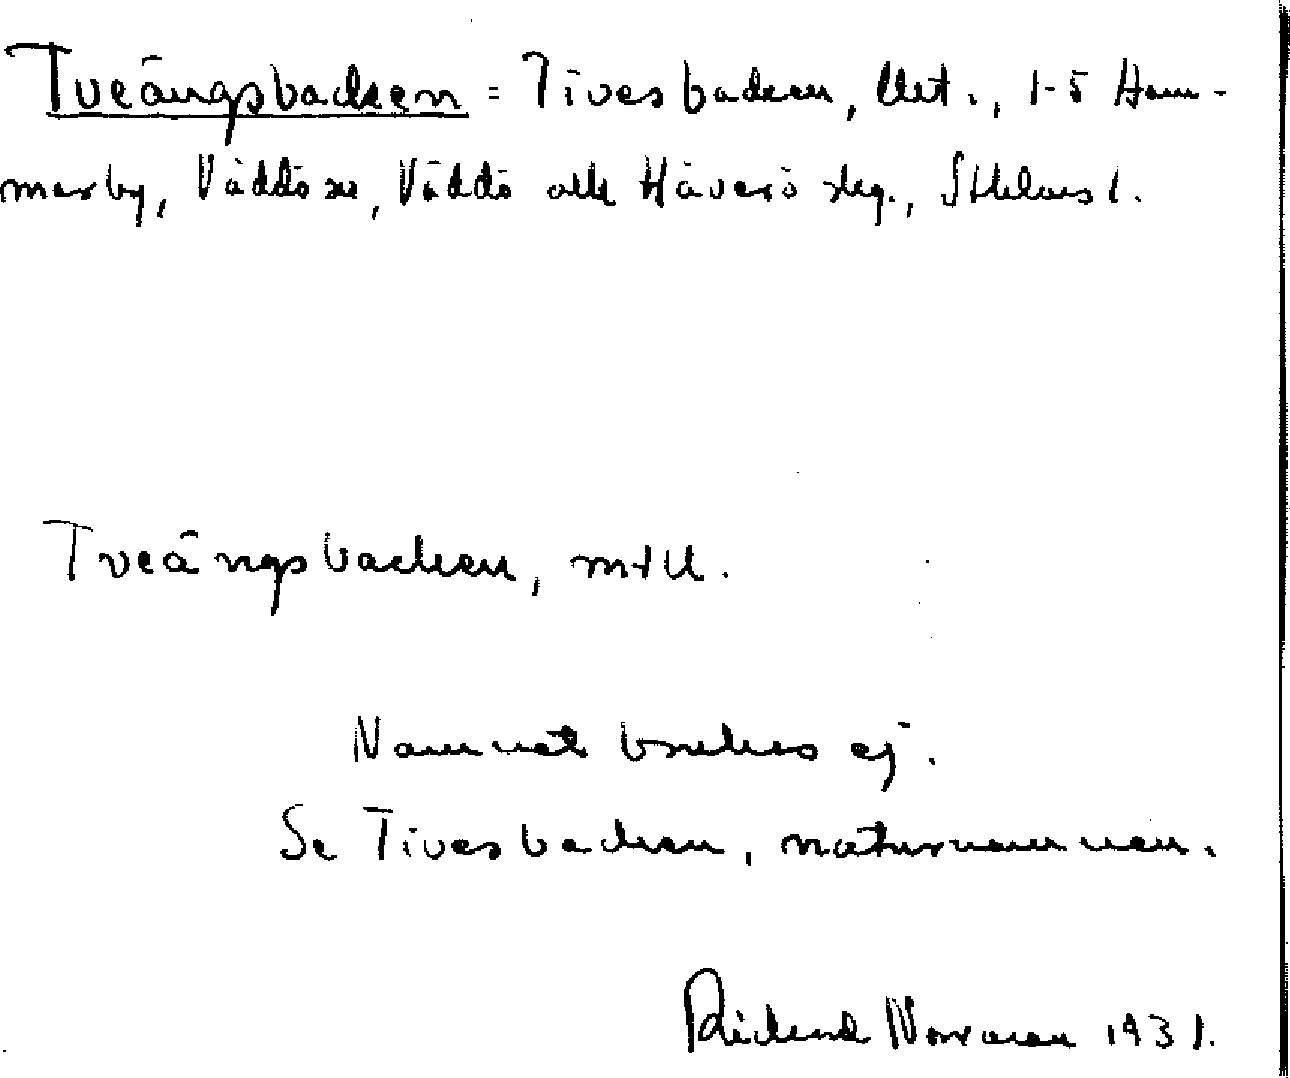 Tveängsbacken = Tivesbacken, Utt., 1-5 Ham-
marby, Väddö sn, Väddö och Häverö skg., Sthlms l.
Tveängsbacken, mtU.
Namnet brukas ej.
Se Tivesbacken, naturnamnen.
Rickard Norraeus 1931.